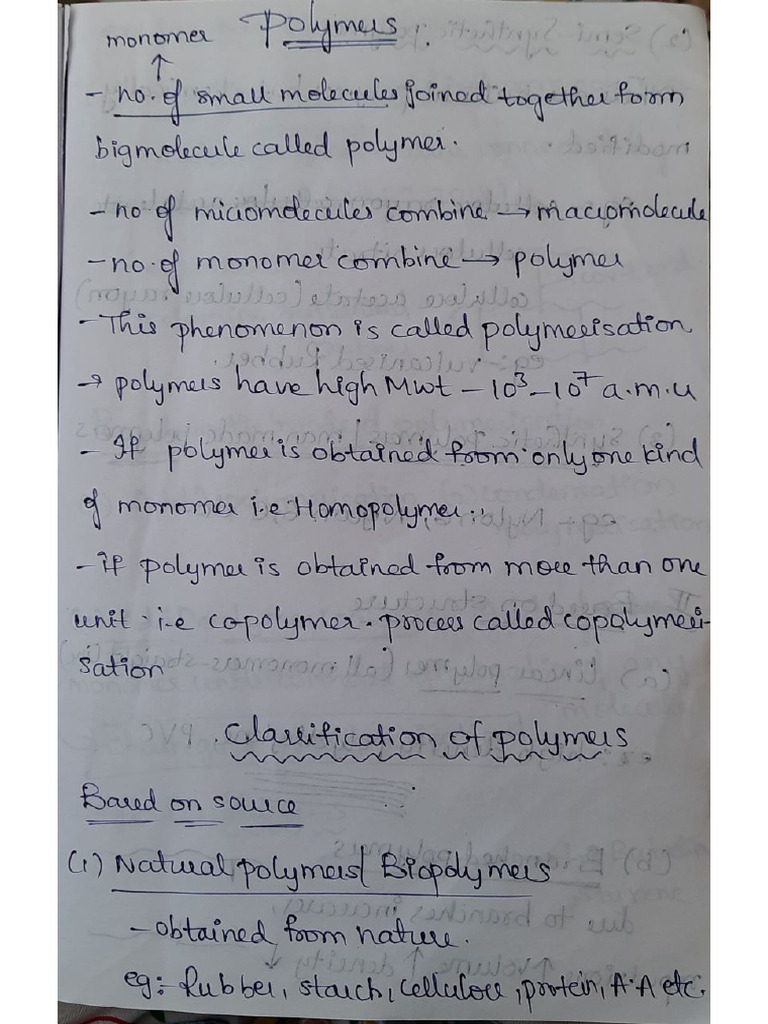 Polymers.
monomer
↑
- no. of small molecules joined together form
bigmolecule called polymer.
- no of micromolecules combine → macromolecule
- no. of monomer combine → polymer
- This phenomenon is called polymerisation
→ polymers have high Mwt - 10³ - 10⁷ a.m.u
- If polymer is obtained from only one kind
of monomer i.e Homopolymer.
- if polymer is obtained from more than one
unit i.e copolymer. process called copolymeri-
sation
Classification of polymers
Based on source
(1) Natural polymers/ Biopolymers
- obtained from nature.
eg:- Rubber, starch, cellulose, protein, A.A etc.